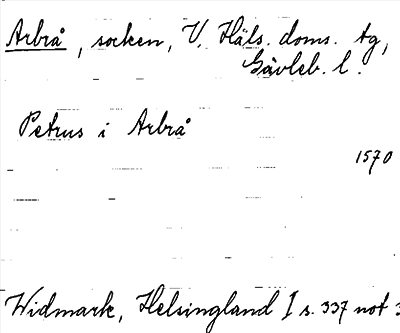 Arbrå, socken, V. Häls. doms. tg,
Gävleb. l.
Petrus i Arbrå
1570
Widmark, Helsingland I s. 337 not 3